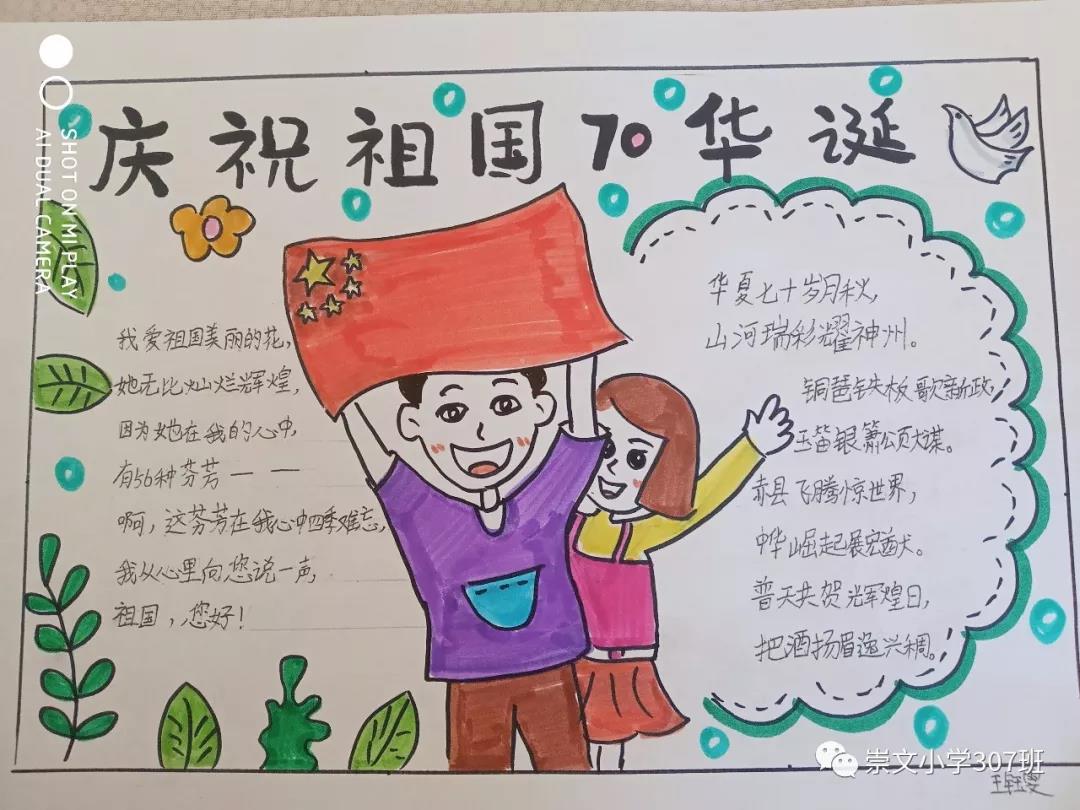 庆祝祖国70华诞
SHOT ON MI PLAY
AI DUAL CAMERA
我爱祖国美丽的花,
她无比灿烂辉煌,
因为她在我的心中,
有56种芬芳——
啊,这芬芳在我心中四季难忘,
我从心里向您说一声,
祖国,您好!
华夏七十岁月秋,
山河瑞彩耀神州。
铜琶铁板歌新政,
玉笛银箫颂大谋。
赤县飞腾惊世界,
中华崛起展宏猷。
普天共贺辉煌日,
把酒扬眉逸兴稠。
崇文小学307班